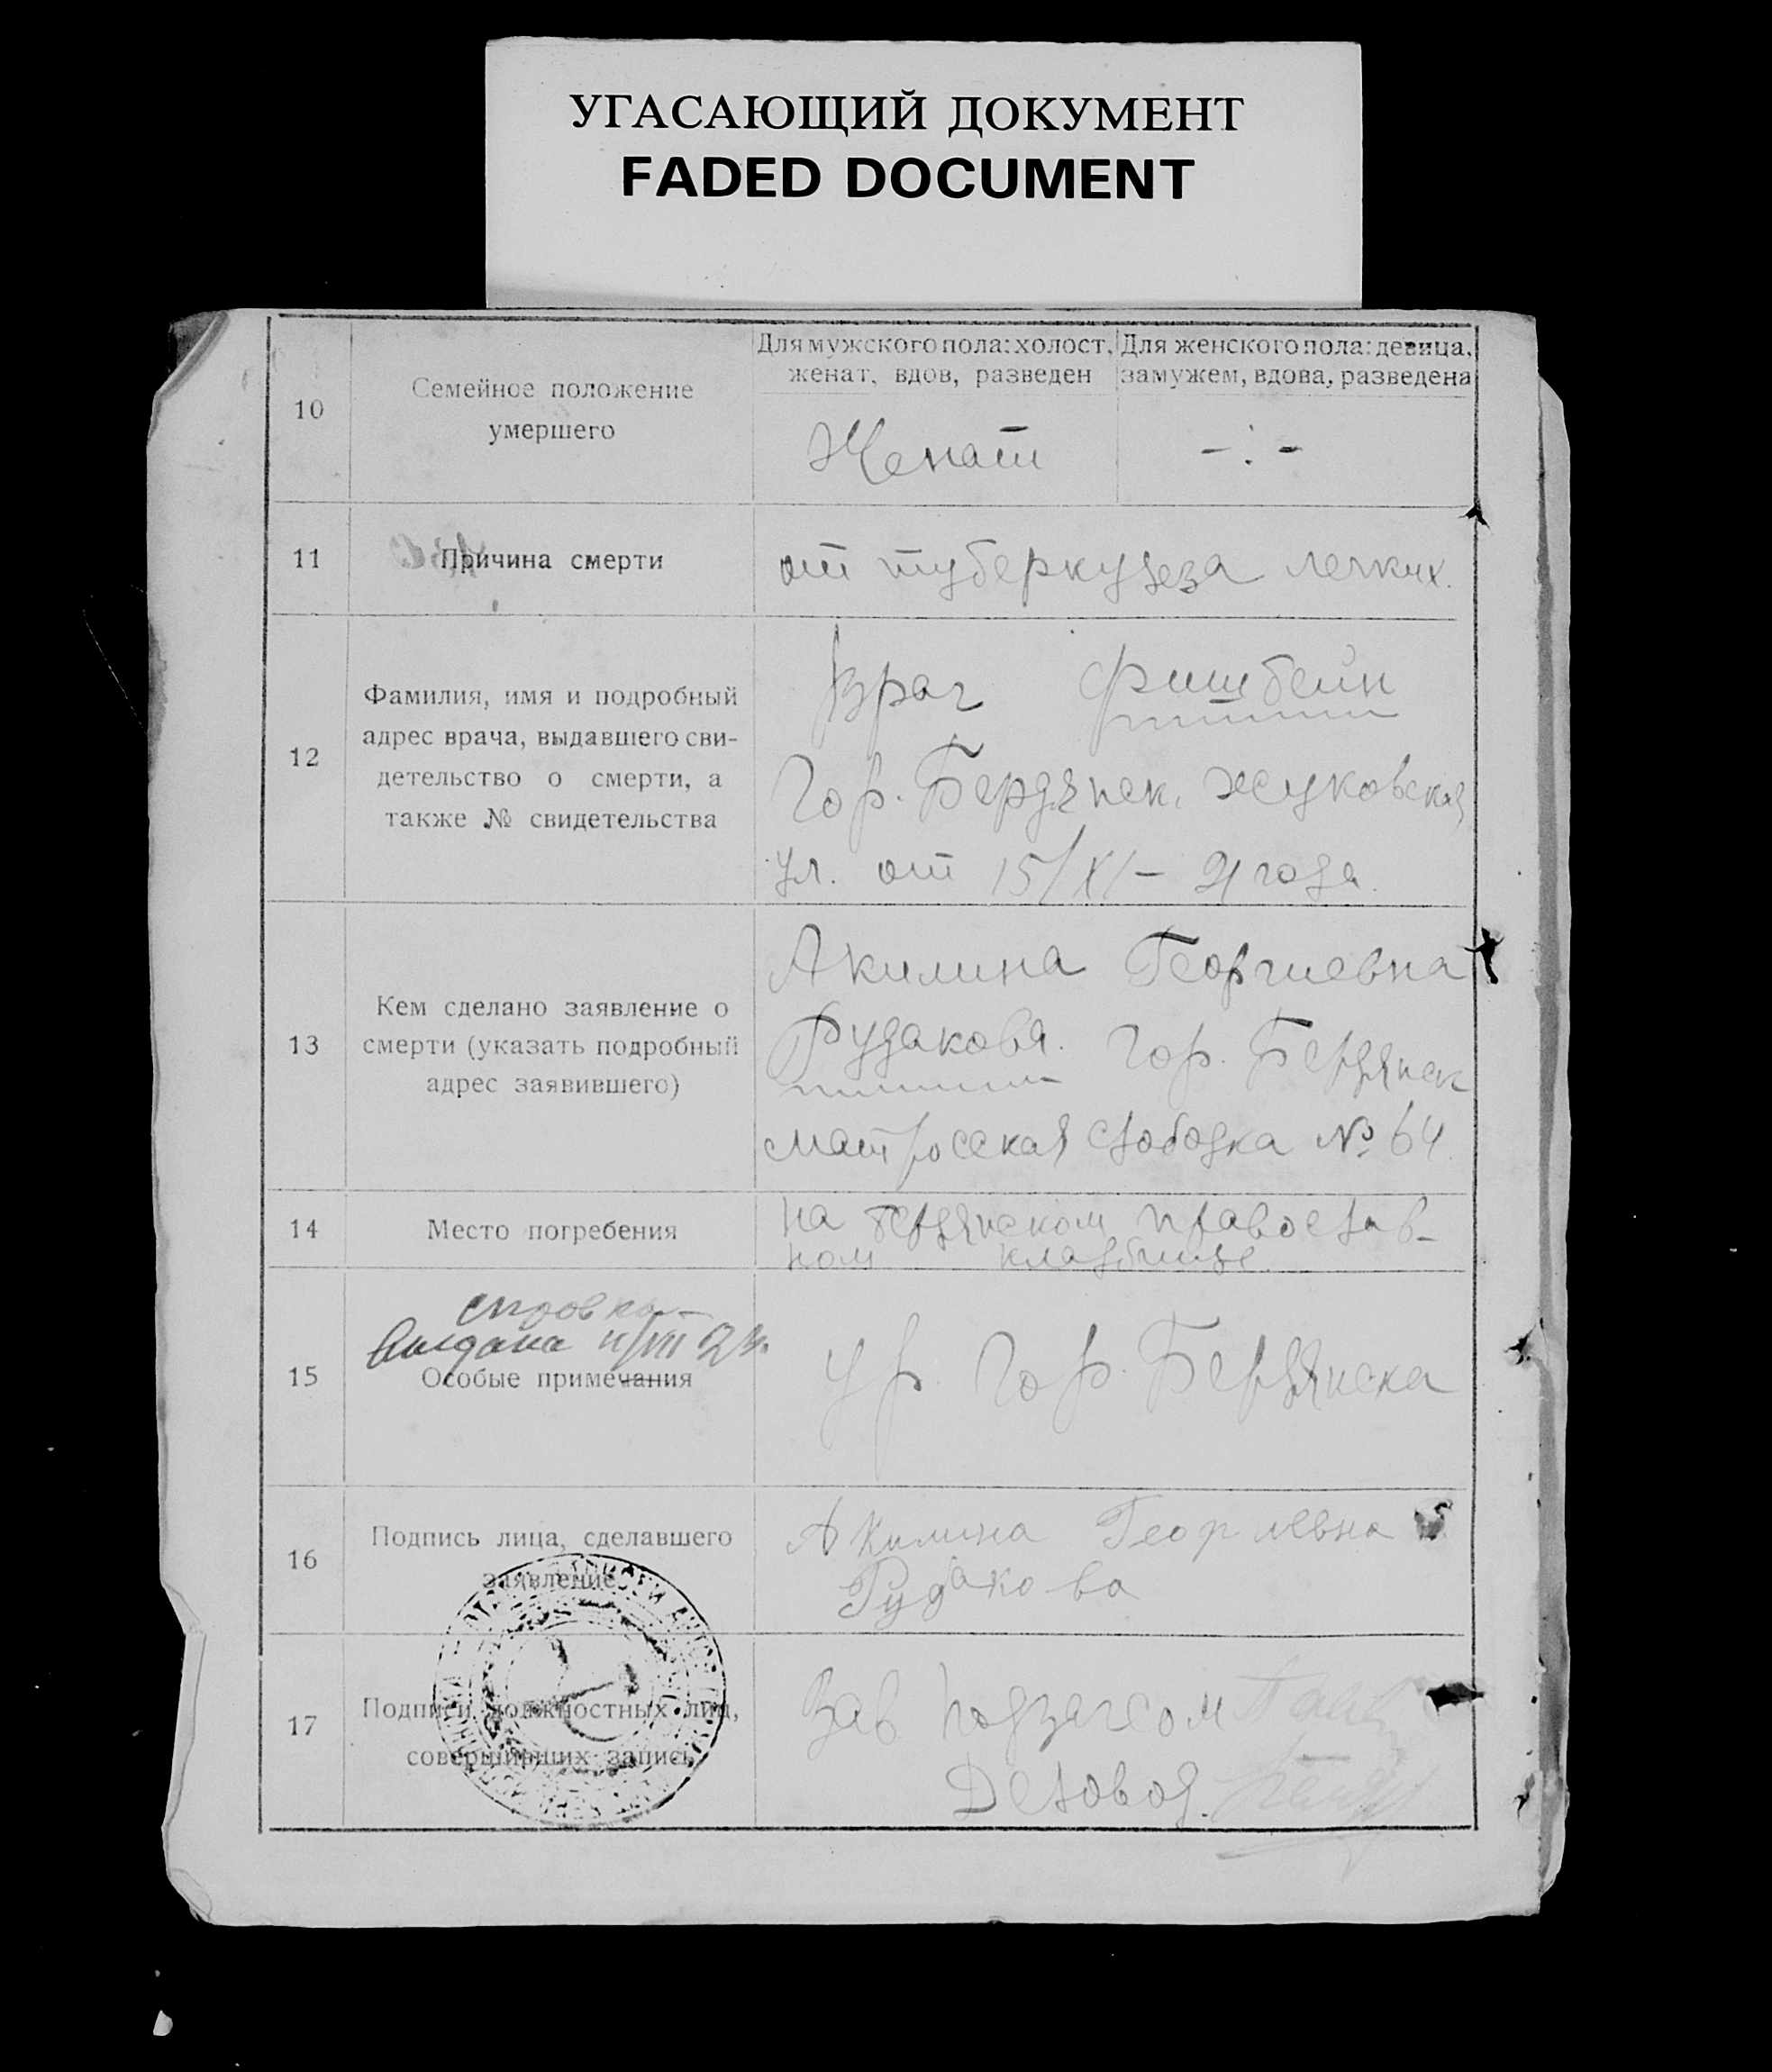 УГАСАЮЩИЙ ДОКУМЕНТ
FADED DOCUMENT
10
Семейное положение
умершего
Для мужского пола: холост,
женат, вдов, разведен
Для женского пола: девица,
замужем, вдова, разведена
Женат
- : -
11
Причина смерти
от туберкулеза легких.
12
Фамилия, имя и подробный
адрес врача, выдавшего сви-
детельство о смерти, а
также № свидетельства
Врач Фишбейн
Гор. Бердянск, Жуковская
ул. от 15/XI - 21 года.
13
Кем сделано заявление о
смерти (указать подробный
адрес заявившего)
Акилина Георгиевна
Рудакова. Гор. Бердянск
матросская слободка № 64
14
Место погребения
на Бердянском православ-
ном кладбище.
15
справка
выдана
Особые примечания
ур. Гор. Бердянска
16
Подпись лица, сделавшего
заявление
Акилина Георгиевна
Рудакова
17
Подписи должностных лиц,
совершивших запись
Зав подзагсом
Деловод.